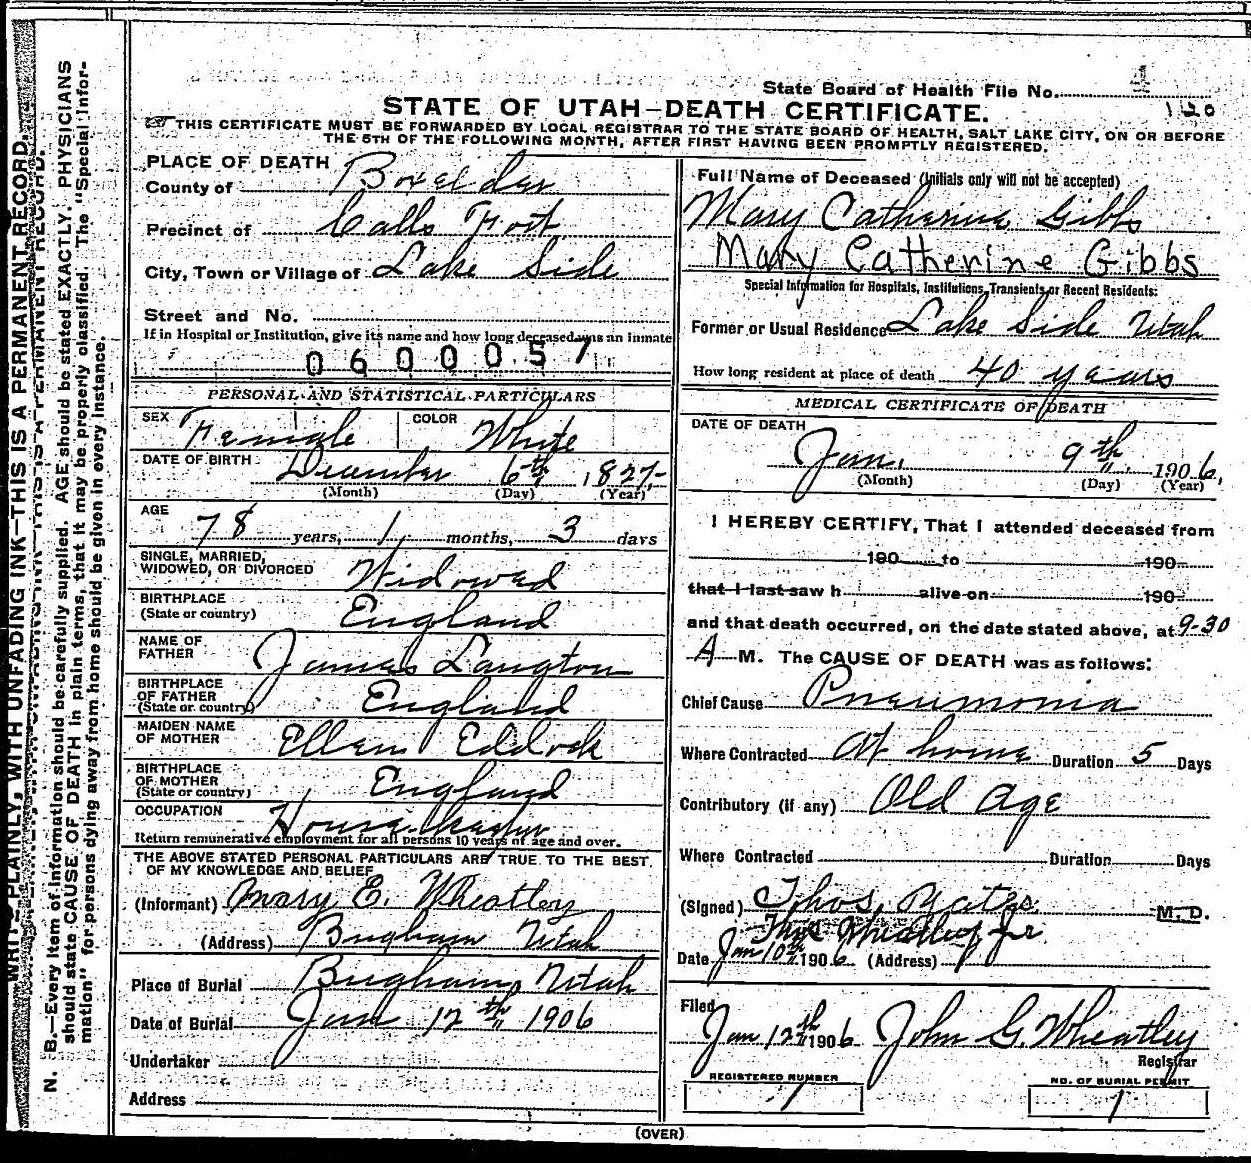 N. B.—Every item of information should be carefully supplied. AGE should be stated EXACTLY. PHYSICIANS
should state CAUSE OF DEATH in plain terms, that it may be properly classified. The "Special Infor-
mation" for persons dying away from home should be given in every instance.
PLAINLY, WITH UNFADING INK—THIS IS A PERMANENT RECORD.
State Board of Health File No. 4
120
STATE OF UTAH—DEATH CERTIFICATE.
THIS CERTIFICATE MUST BE FORWARDED BY LOCAL REGISTRAR TO THE STATE BOARD OF HEALTH, SALT LAKE CITY, ON OR BEFORE
THE 5TH OF THE FOLLOWING MONTH, AFTER FIRST HAVING BEEN PROMPTLY REGISTERED.
PLACE OF DEATH
County of Boxelder
Precinct of Calls Fort
City, Town or Village of Lake Side
Street and No.
If in Hospital or Institution, give its name and how long deceased was an inmate
0600057
PERSONAL AND STATISTICAL PARTICULARS
SEX Female COLOR White
DATE OF BIRTH December 6th, 1827
(Month) (Day) (Year)
AGE
78 years, 1 months, 3 days
SINGLE, MARRIED,
WIDOWED, OR DIVORCED Widowed
BIRTHPLACE
(State or country) England
NAME OF
FATHER James Langton
BIRTHPLACE
OF FATHER
(State or country) England
MAIDEN NAME
OF MOTHER Ellen Eddock
BIRTHPLACE
OF MOTHER
(State or country) England
OCCUPATION Housekeeper
Return remunerative employment for all persons 10 years of age and over.
THE ABOVE STATED PERSONAL PARTICULARS ARE TRUE TO THE BEST
OF MY KNOWLEDGE AND BELIEF
(Informant) Mary E. Wheatley
(Address) Brigham Utah
Place of Burial Brigham, Utah
Date of Burial Jan 12th 1906
Undertaker
Address
Full Name of Deceased (Initials only will not be accepted)
Mary Catherine Gibbs
Mary Catherine Gibbs
Special Information for Hospitals, Institutions, Transients or Recent Residents:
Former or Usual Residence Lake Side Utah
How long resident at place of death 40 years
MEDICAL CERTIFICATE OF DEATH
DATE OF DEATH
Jan. 9th, 1906,
(Month) (Day) (Year)
I HEREBY CERTIFY, That I attended deceased from
190 to 190
that I last saw h alive on 190
and that death occurred, on the date stated above, at 9-30
A M. The CAUSE OF DEATH was as follows:
Chief Cause Pneumonia
Where Contracted At home Duration 5 Days
Contributory (if any) Old Age
Where Contracted Duration Days
(Signed) Thos Yates M. D.
Thos Wheatley Jr
Date Jan 10th 1906 (Address)
Filed
Jan 12th 1906 John G. Wheatley
Registrar
REGISTERED NUMBER
1
NO. OF BURIAL PERMIT
1
(OVER)